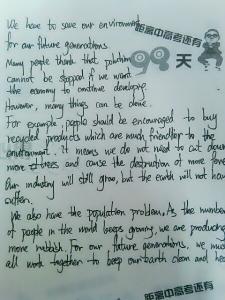 We have to save our environment
for our future generations.
Many people think that pollution
cannot be stopped if we want
the economy to continue developing.
However, many things can be done.
For example, people should be encouraged to buy
recycled products which are much friendlier to the
environment. It means we do not need to cut down
more trees and cause the destruction of more
Our industry will still grow, but the earth will not
suffer.
We also have the population problem. As the number
of people in the world keeps growing, we are producing
more rubbish. For our future generations, we must
all work together to keep our earth clean and
距离中高考还有
98天
距离中高考还有